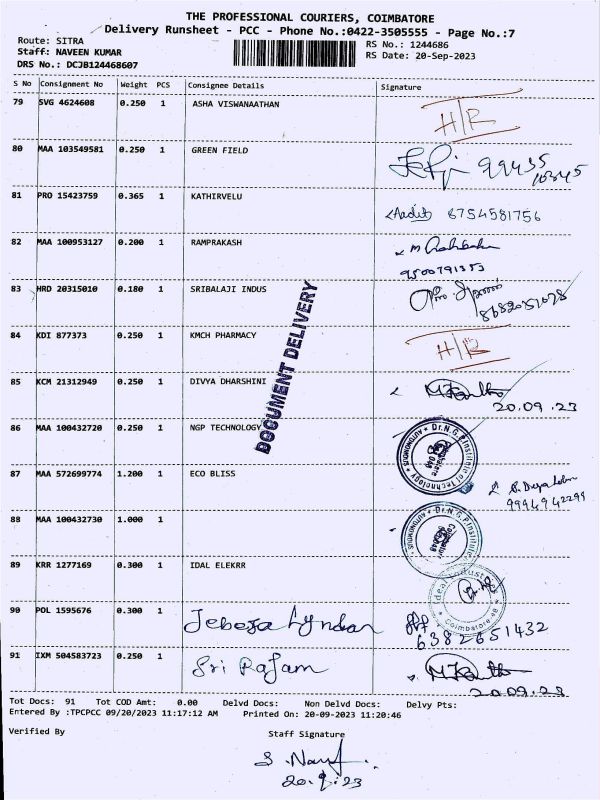 THE PROFESSIONAL COURIERS, COIMBATORE
Delivery Runsheet - PCC - Phone No.:0422-3505555 - Page No.:7
Route: SITRA
RS No.: 1244686
Staff: NAVEEN KUMAR
RS Date: 20-Sep-2023
DRS No.: DCJB124468607
S No Consignment No Weight PCS Consignee Details Signature
79 SVG 4624608 0.250 1 ASHA VISWANAATHAN H/R
80 MAA 103549581 0.250 1 GREEN FIELD 99435
10345
81 PRO 15423759 0.365 1 KATHIRVELU 8754581756
82 MAA 100953127 0.200 1 RAMPRAKASH
9500791353
83 HRD 20315010 0.180 1 SRIBALAJI INDUS
84 KDI 877373 0.250 1 KMCH PHARMACY H/R
DOCUMENT DELIVERY
85 KCM 21312949 0.250 1 DIVYA DHARSHINI
20.09.23
86 MAA 100432720 0.250 1 NGP TECHNOLOGY
Dr.N.G.P.Institute of Technology * AUTONOMOUS *
87 MAA 572699774 1.200 1 ECO BLISS
9994942299
88 MAA 100432730 1.000 1
89 KRR 1277169 0.300 1 IDAL ELEKRR
Coimbatore-48
90 POL 1595676 0.300 1 Jebesa Lyndan
6382651432
91 IXM 504583723 0.250 1 Sri Rajam
20.09.23
Tot Docs: 91 Tot COD Amt: 0.00 Delvd Docs: Non Delvd Docs: Delvy Pts:
Entered By :TPCPCC 09/20/2023 11:17:12 AM Printed On: 20-09-2023 11:20:46
Verified By Staff Signature
20.9.23